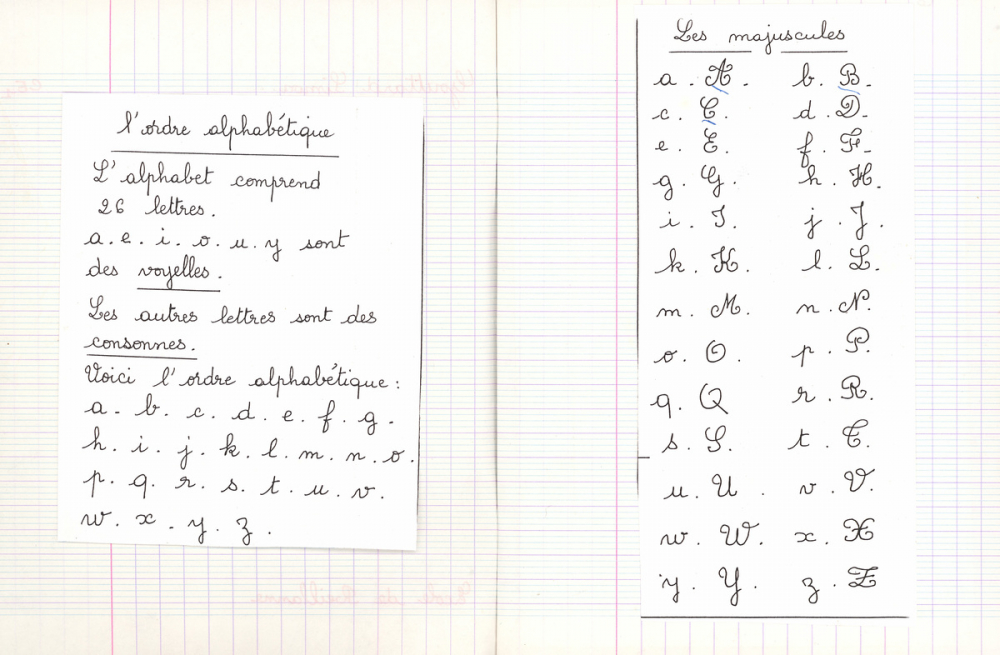 l'ordre alphabétique
L'alphabet comprend
26 lettres.
a. e. i. o. u. y sont
des voyelles.
Les autres lettres sont des
consonnes.
Voici l'ordre alphabétique :
a. b. c. d. e. f. g.
h. i. j. k. l. m. n. o.
p. q. r. s. t. u. v.
w. x. y. z.
Les majuscules
a. A. b. B.
c. C. d. D.
e. E. f. F.
g. G. h. H.
i. I. j. J.
k. K. l. L.
m. M. n. N.
o. O. p. P.
q. Q r. R.
s. S. t. T.
u. U. v. V.
w. W. x. X
y. Y. z. Z